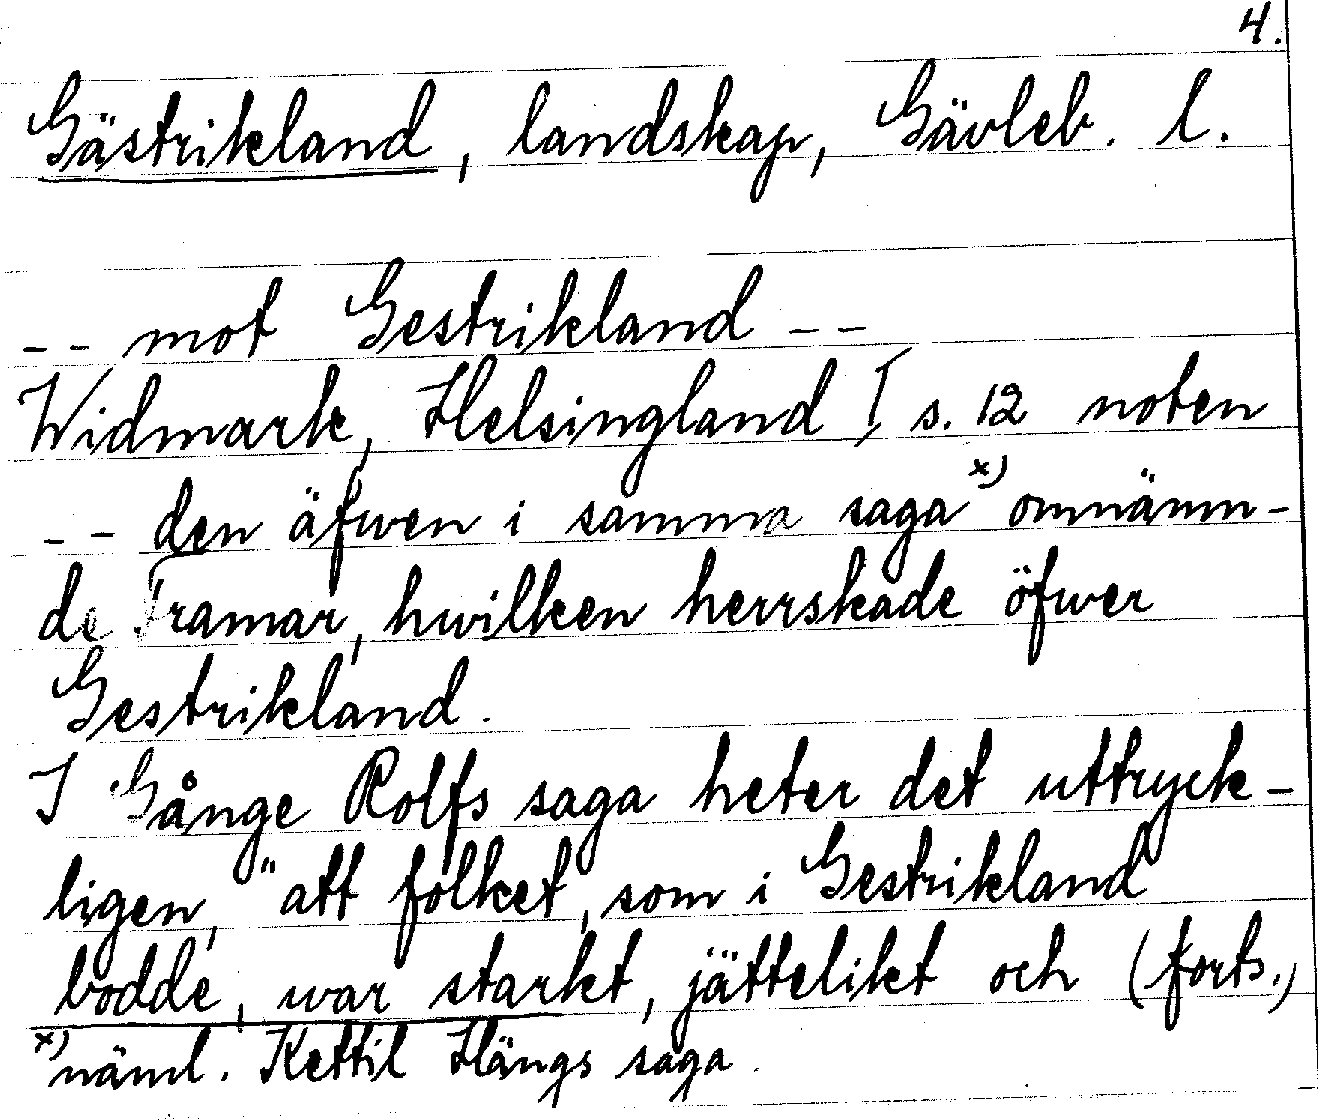 4.
Gästrikland, landskap, Gävleb. l.
-- mot Gestrikland --
Widmark, Helsingland I s. 12 noten
-- den äfwen i samma saga x) omnämn-
de Framar, hwilken herrskade öfwer
Gestrikland.
I Gånge Rolfs saga heter det uttryck-
ligen, "att folket, som i Gestrikland
bodde, war starkt, jättelikt och (forts.)
x) näml. Kettil Hängs saga.